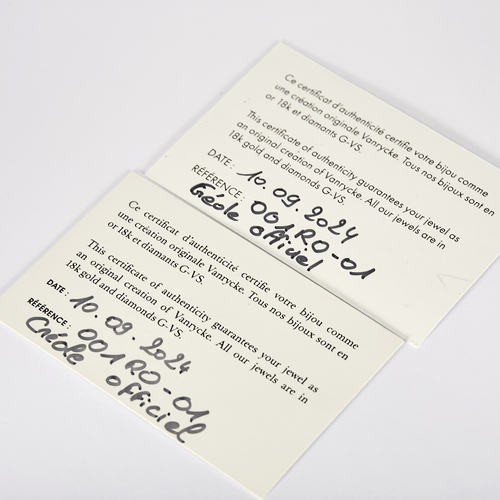 Ce certificat d'authenticité certifie votre bijou comme
une création originale Vanrycke. Tous nos bijoux sont en
or 18k et diamants G-VS.
This certificate of authenticity guarantees your jewel as
an original creation of Vanrycke. All our jewels are in
18k gold and diamonds G-VS.
DATE : 10.09.2024
RÉFÉRENCE : 001RO-01
Créole officiel
Ce certificat d'authenticité certifie votre bijou comme
une création originale Vanrycke. Tous nos bijoux sont en
or 18k et diamants G-VS.
This certificate of authenticity guarantees your jewel as
an original creation of Vanrycke. All our jewels are in
18k gold and diamonds G-VS.
DATE : 10.09.2024
RÉFÉRENCE : 001RO-01
Créole officiel